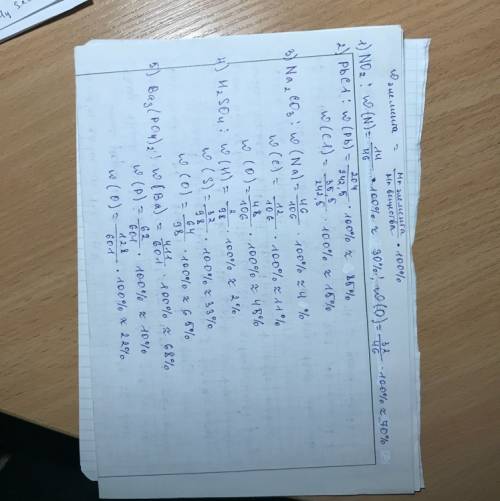 W элемента = Mr элемента / Mr вещества · 100%
1) NO2 : W(N) = 14/46 · 100% ≈ 30%; W(O) = 32/46 · 100% ≈ 70%
2) PbCl : W(Pb) = 207/242,5 · 100% ≈ 85%
W(Cl) = 35,5/242,5 · 100% ≈ 15%
3) Na2CO3 : W(Na) = 46/106 · 100% ≈ 4 %
W(C) = 12/106 · 100% ≈ 11%
W(O) = 48/106 · 100% ≈ 45%
4) H2SO4 : W(H) = 2/98 · 100% ≈ 2%
W(S) = 32/98 · 100% ≈ 33%
W(O) = 64/98 · 100% ≈ 65%
5) Ba3(PO4)2 : W(Ba) = 411/601 · 100% ≈ 68%
W(P) = 62/601 · 100% ≈ 10%
W(O) = 128/601 · 100% ≈ 22%